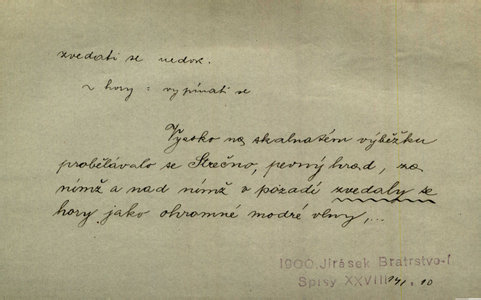 zvedati se nedok.
~ hory : vypínati se
Vysoko na skalnatém výběžku
probělávalo se Strečno, pevný hrad, za
nímž a nad nímž v pozadí zvedaly se
hory jako ohromné modré vlny,...
1900, Jirásek Bratrstvo-I.
Spisy XXVIII 141 : 10